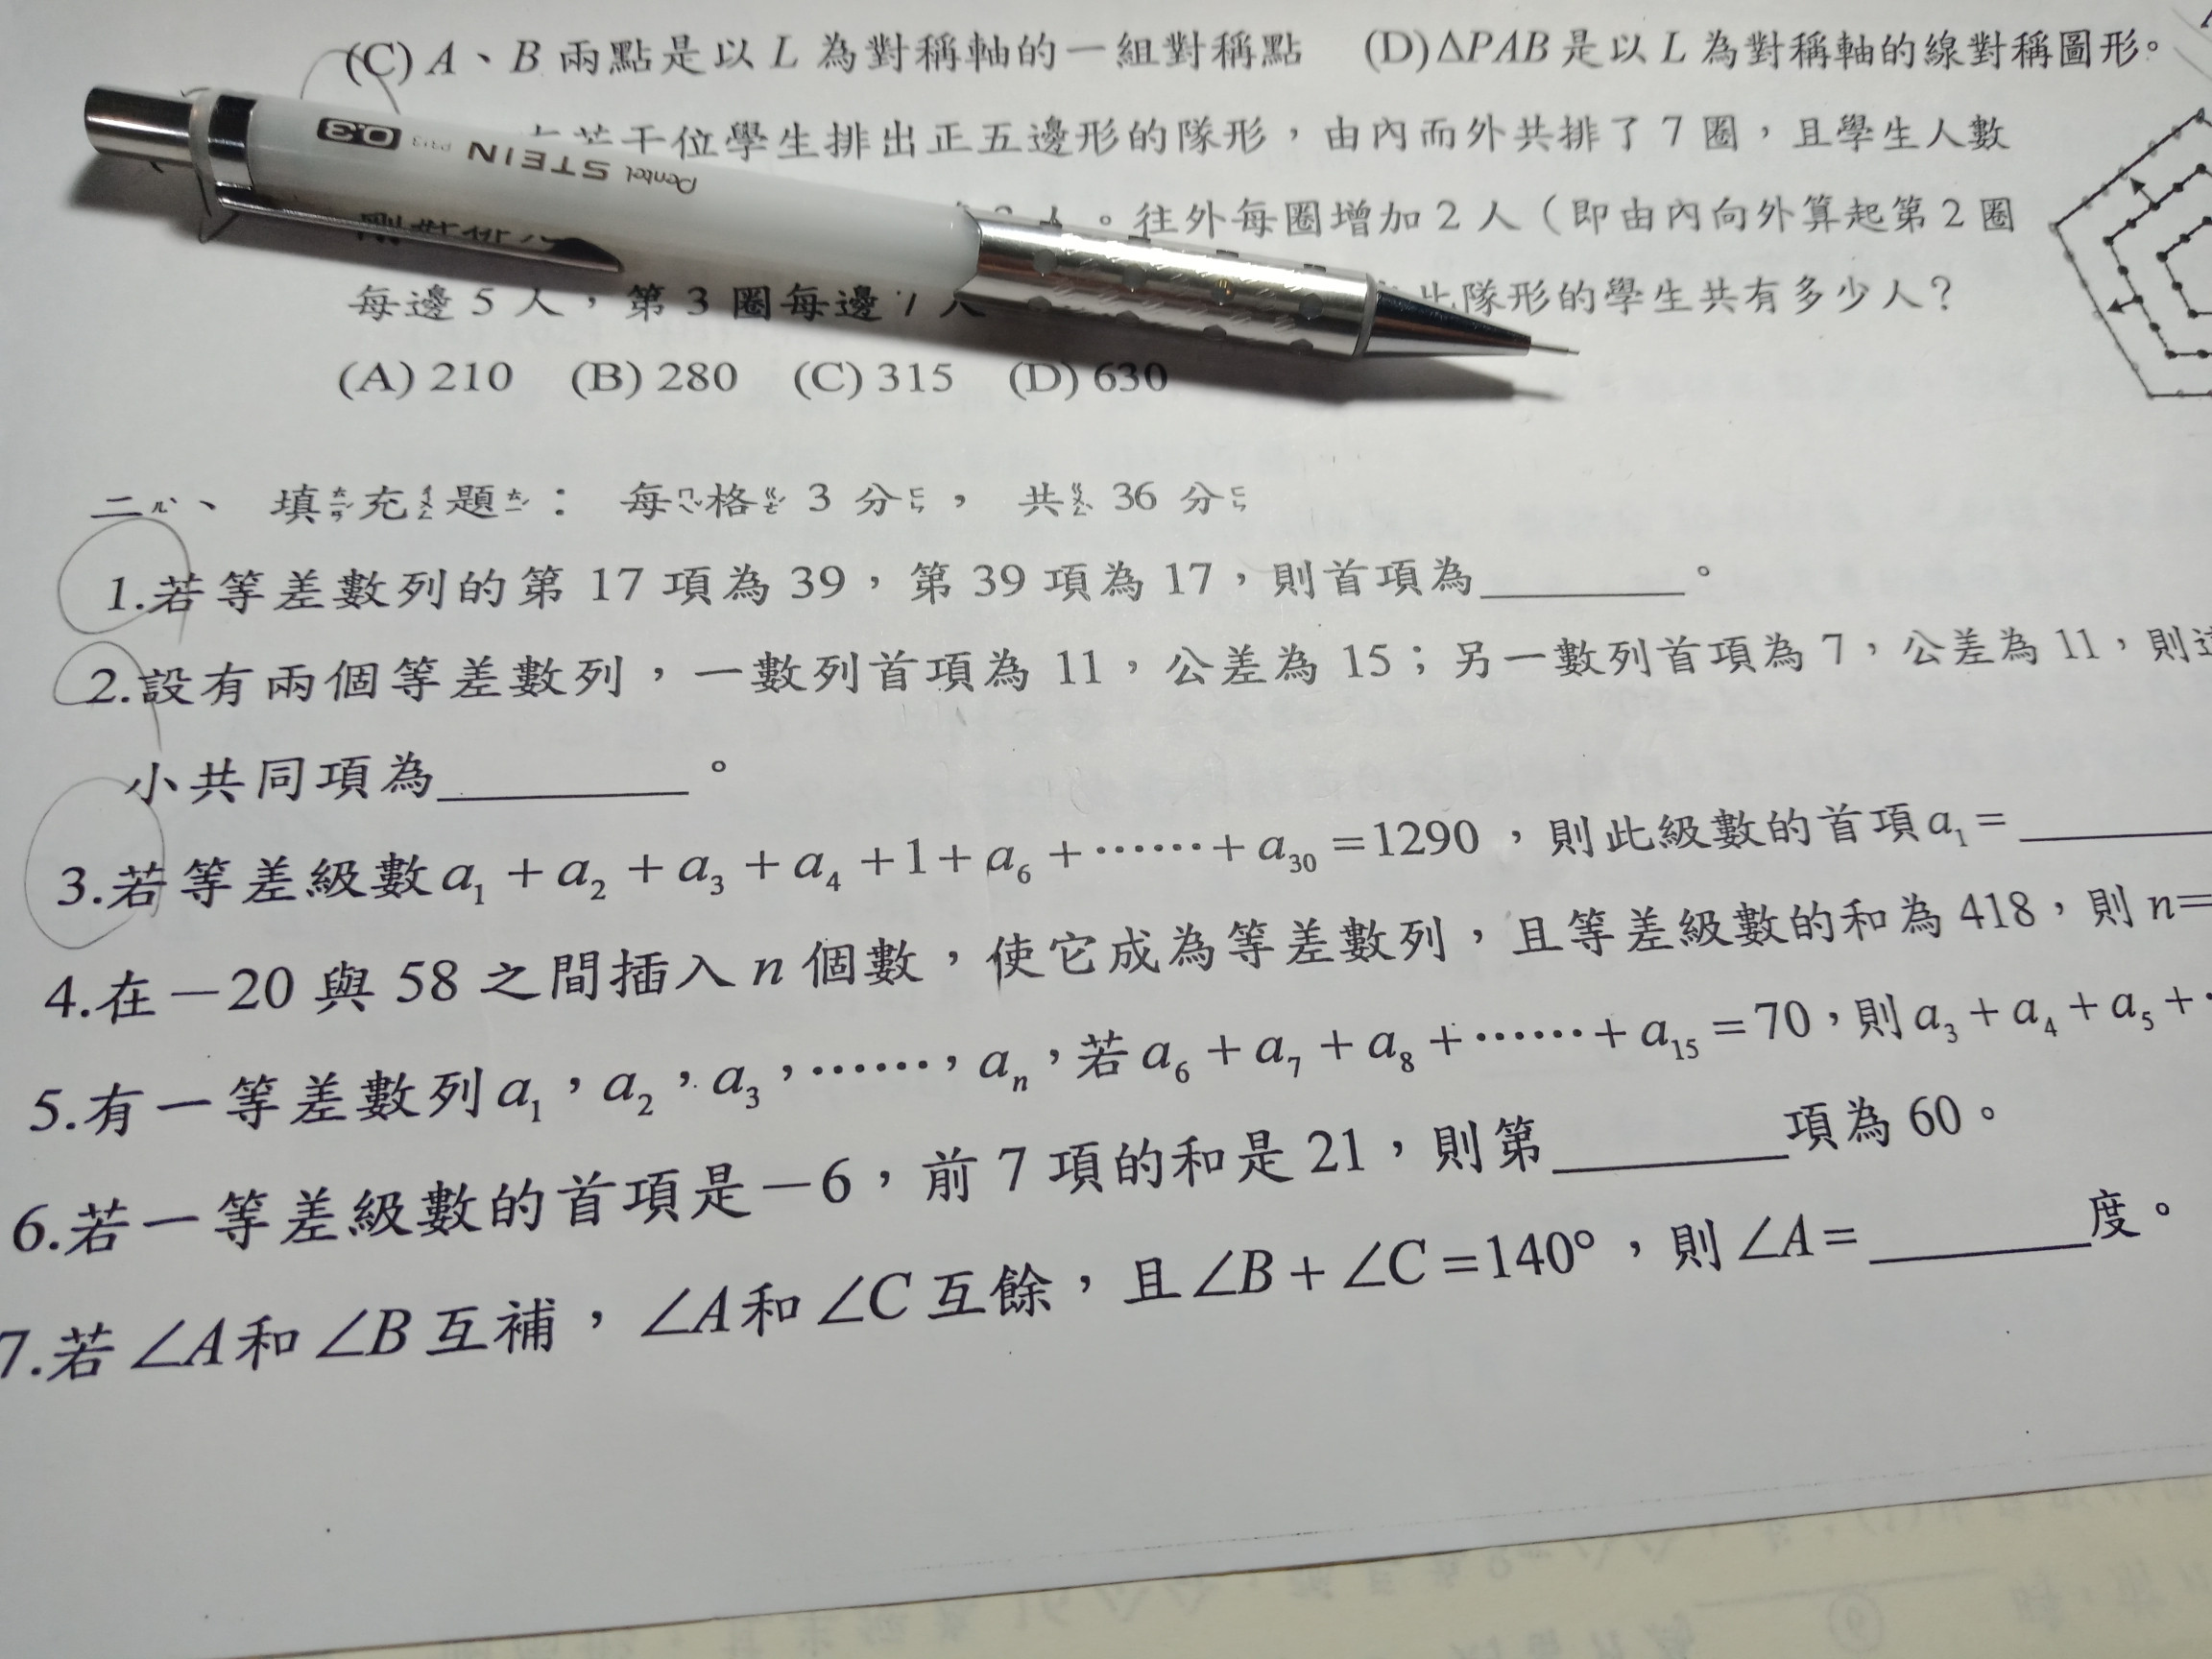 (C) A、B 兩點是以 L 為對稱軸的一組對稱點 (D) ΔPAB 是以 L 為對稱軸的線對稱圖形。
若干位學生排出正五邊形的隊形，由內而外共排了 7 圈，且學生人數
人。往外每圈增加 2 人（即由內向外算起第 2 圈
每邊 5 人，第 3 圈每邊 7 人 此隊形的學生共有多少人？
(A) 210 (B) 280 (C) 315 (D) 630
Pentel STEIN P313 0.3
二ㄦˋ、填ㄊㄧㄢˊ充ㄔㄨㄥ題ㄊㄧˊ：每ㄇㄟˇ格ㄍㄜˊ 3 分ㄈㄣ，共ㄍㄨㄥˋ 36 分ㄈㄣ
1.若等差數列的第 17 項為 39，第 39 項為 17，則首項為________。
2.設有兩個等差數列，一數列首項為 11，公差為 15；另一數列首項為 7，公差為 11，則
小共同項為________。
3.若等差級數 a₁ + a₂ + a₃ + a₄ +1+ a₆ + ⋯⋯ + a₃₀ =1290，則此級數的首項 a₁ = ________
4.在－20 與 58 之間插入 n 個數，使它成為等差數列，且等差級數的和為 418，則 n=
5.有一等差數列 a₁，a₂，a₃，⋯⋯，aₙ，若 a₆ + a₇ + a₈ + ⋯⋯ + a₁₅ = 70，則 a₃ + a₄ + a₅ +
6.若一等差級數的首項是－6，前 7 項的和是 21，則第________項為 60。
7.若 ∠A 和 ∠B 互補，∠A 和 ∠C 互餘，且 ∠B + ∠C =140°，則 ∠A = ________度。